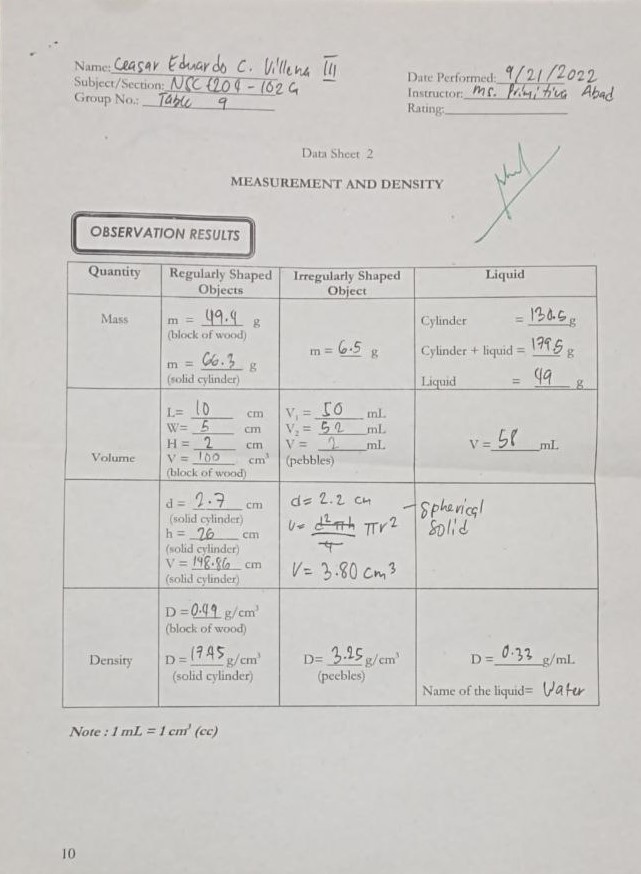 Name: Ceasar Eduardo C. Villena III
Subject/Section: NSC 1204 - 102G
Group No.: Table 9
Date Performed: 9/21/2022
Instructor: Ms. Primitiva Abad
Rating:
Data Sheet 2
MEASUREMENT AND DENSITY
OBSERVATION RESULTS
Quantity
Regularly Shaped
Objects
Irregularly Shaped
Object
Liquid
Mass
m = 49.4 g
(block of wood)
m = 66.3 g
(solid cylinder)
m = 6.5 g
Cylinder = 130.5 g
Cylinder + liquid = 179.5 g
Liquid = 49 g
Volume
L= 10 cm
W= 5 cm
H = 2 cm
V = 100 cm³
(block of wood)
V₁ = 50 mL
V₂ = 52 mL
V = 2 mL
(pebbles)
V = 58 mL
d = 2.7 cm
(solid cylinder)
h = 26 cm
(solid cylinder)
V = 148.86 cm
(solid cylinder)
d= 2.2 cm
V= d²πh πr²
4
V= 3.80 cm³
- Spherical
Solid
Density
D = 0.49 g/cm³
(block of wood)
D = 17.45 g/cm³
(solid cylinder)
D= 3.25 g/cm³
(peebles)
D = 0.33 g/mL
Name of the liquid= Water
Note : 1 mL = 1 cm³ (cc)
10